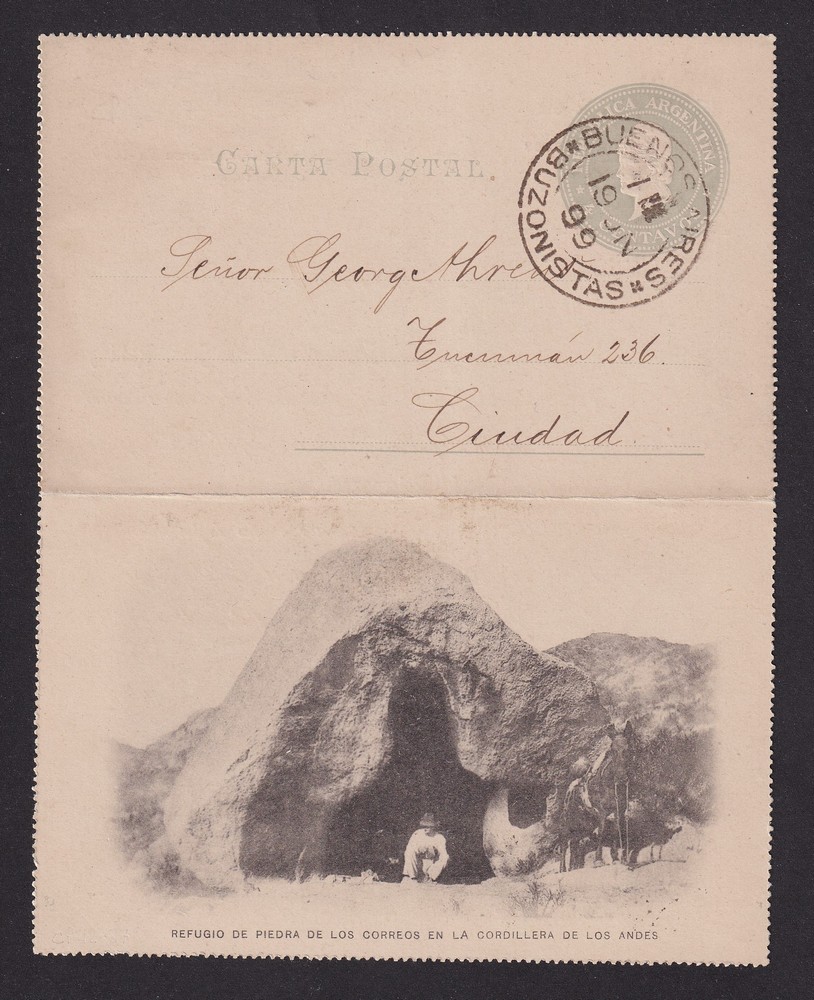 CARTA POSTAL.
ICA ARGENTINA
NTAVO
BUENOS AIRES
1 PM
19 JN
99
BUZONISTAS
Señor Georg
Tucumán 236.
Ciudad
REFUGIO DE PIEDRA DE LOS CORREOS EN LA CORDILLERA DE LOS ANDES